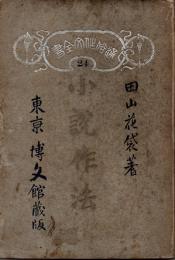 通俗作文全書
24
田山花袋著
小説作法
東京 博文館蔵版